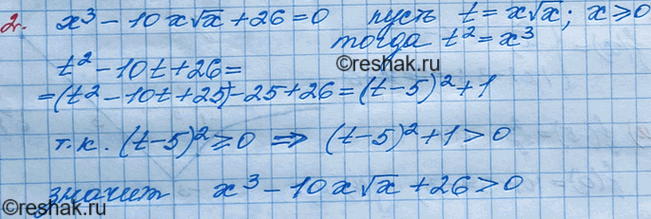 2. x³ − 10x√x + 26 = 0 пусть t = x√x; x ≥ 0
тогда t² = x³
t² − 10t + 26 =
= (t² − 10t + 25) − 25 + 26 = (t − 5)² + 1
т.к. (t − 5)² ≥ 0 ⇒ (t − 5)² + 1 > 0
значит x³ − 10x√x + 26 > 0
©reshak.ru
©reshak.ru